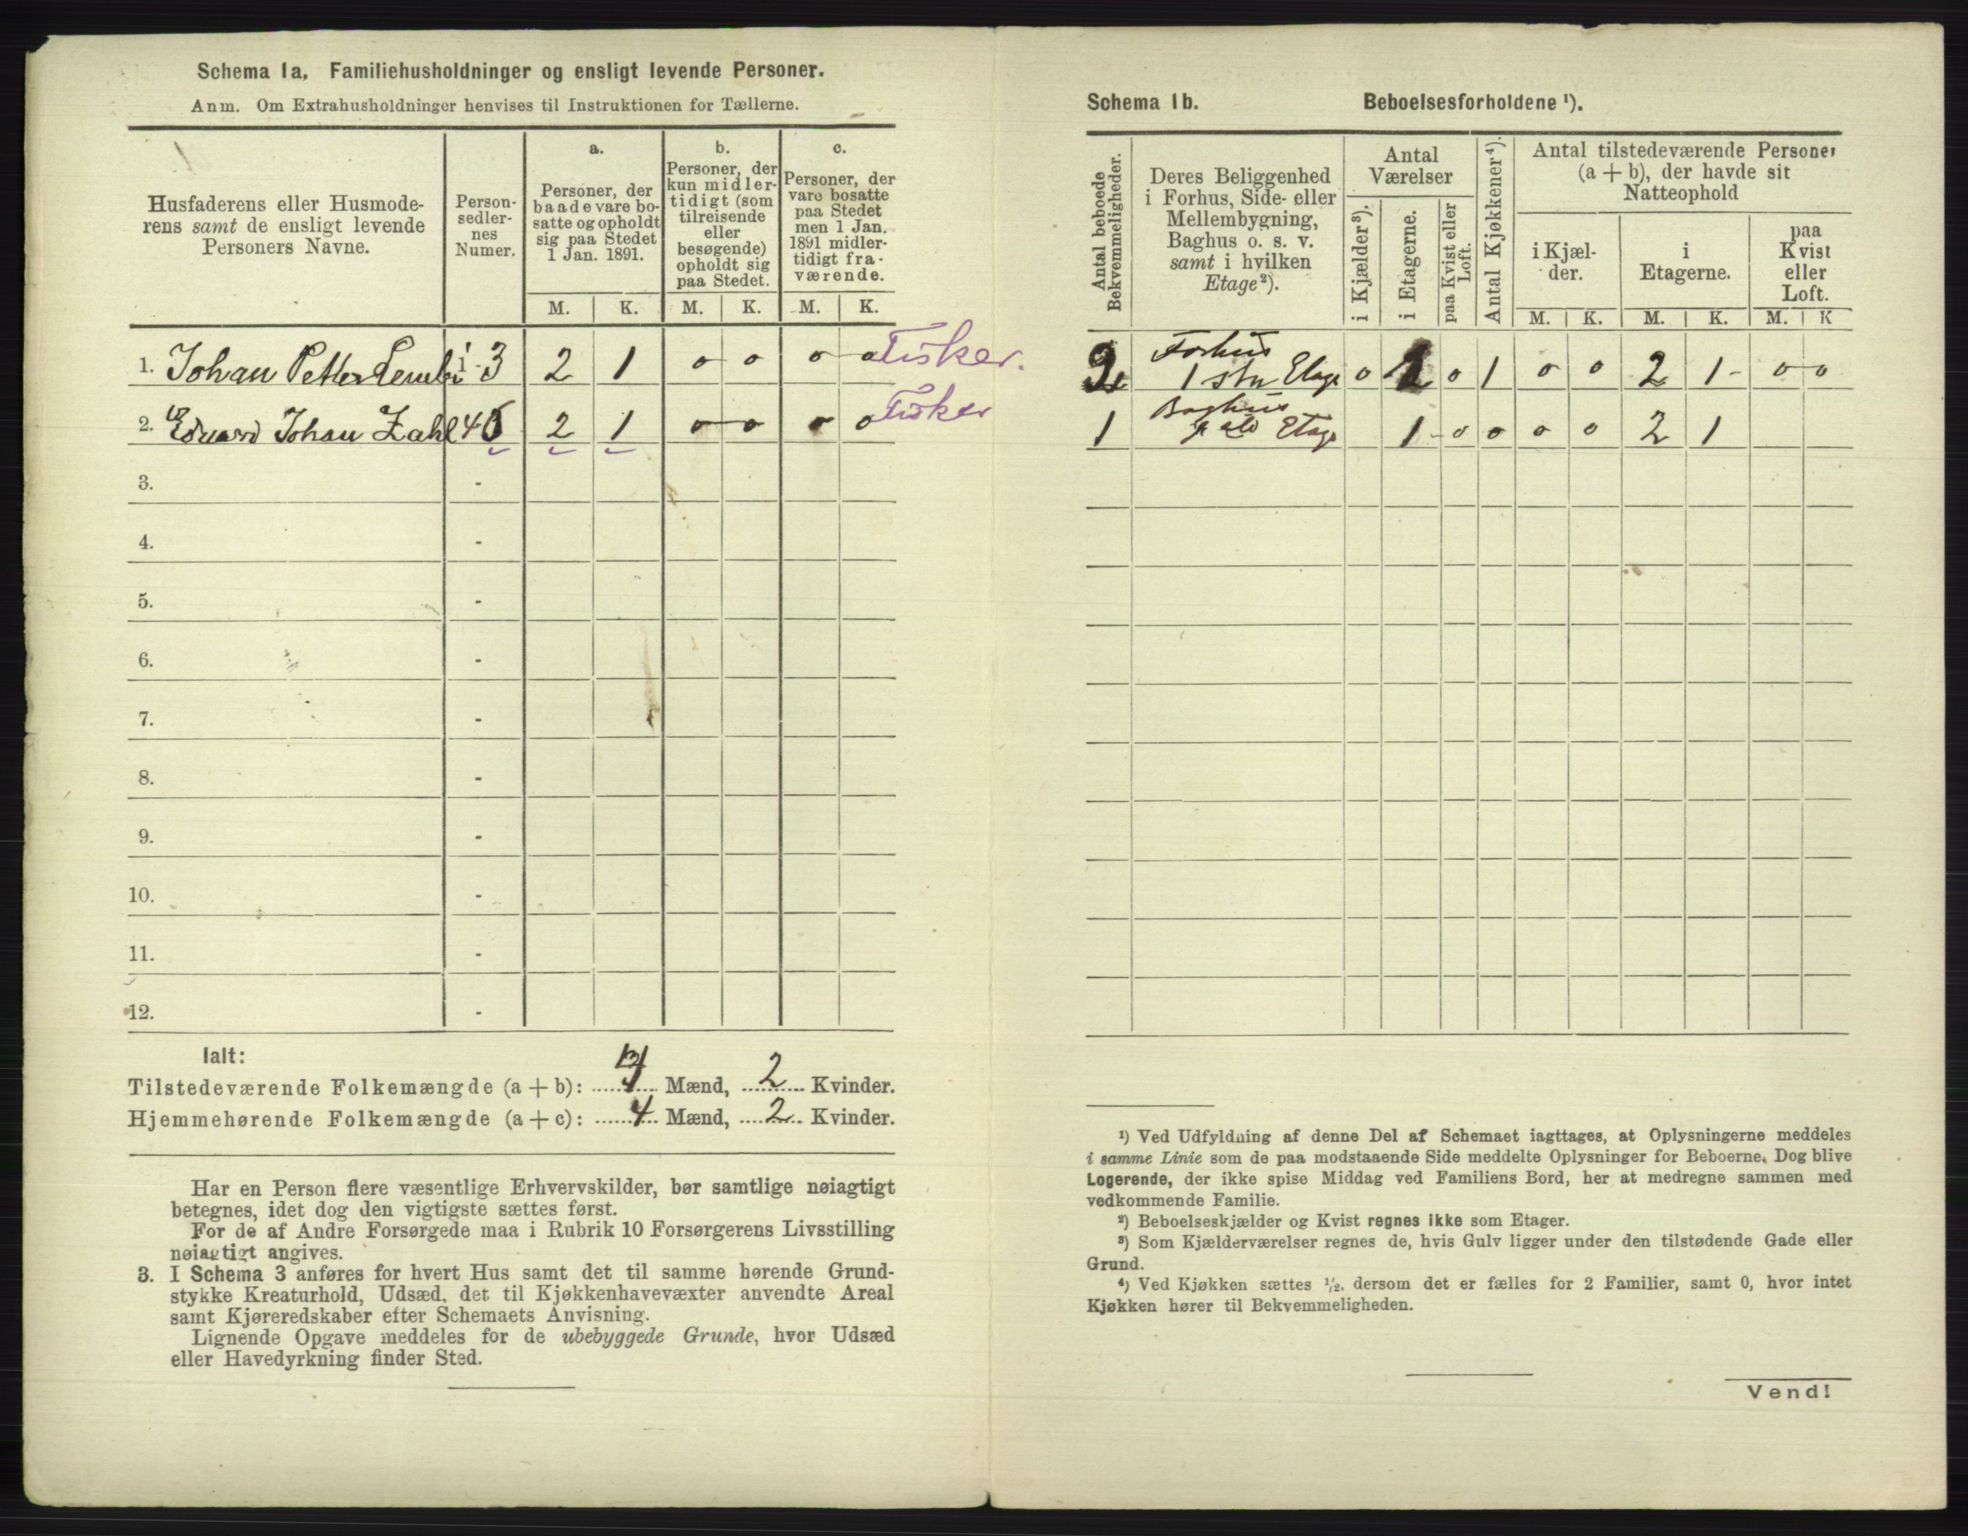 Schema 1a. Familiehusholdninger og ensligt levende Personer.
Anm. Om Extrahusholdninger henvises til Instruktionen for Tællerne.
Husfaderens eller Husmode-
rens samt de ensligt levende
Personers Navne.
Person-
sedler-
nes
Numer.
a.
Personer, der
baade vare bo-
satte og opholdt
sig paa Stedet
1 Jan. 1891.
b.
Personer, der
kun midler-
tidigt (som
tilreisende
eller
besøgende)
opholdt sig
paa Stedet.
c.
Personer, der
vare bosatte
paa Stedet
men 1 Jan.
1891 midler-
tidigt fra-
værende.
M. K. M. K. M. K.
1. Johan Petter 1 - 3 2 1 0 0 0 0 Fisker.
2. Eduard Johan Zahl 4 2 1 0 0 0 0 Fisker
3. -
4. -
5. -
6. -
7. -
8. -
9. -
10. -
11. -
12. -
Ialt:
Tilstedeværende Folkemængde (a + b): 4 Mænd, 2 Kvinder.
Hjemmehørende Folkemængde (a + c): 4 Mænd, 2 Kvinder.
Har en Person flere væsentlige Erhvervskilder, bør samtlige nøiagtigt
betegnes, idet dog den vigtigste sættes først.
For de af Andre Forsørgede maa i Rubrik 10 Forsørgerens Livsstilling
nøiagtigt angives.
3. I Schema 3 anføres for hvert Hus samt det til samme hørende Grund-
stykke Kreaturhold, Udsæd, det til Kjøkkenhavevæxter anvendte Areal
samt Kjøreredskaber efter Schemaets Anvisning.
Lignende Opgave meddeles for de ubebyggede Grunde, hvor Udsæd
eller Havedyrkning finder Sted.
Schema 1b. Beboelsesforholdene ¹).
Antal beboede
Bekvemmeligheder.
Deres Beliggenhed
i Forhus, Side- eller
Mellembygning,
Baghus o. s. v.
samt i hvilken
Etage ²).
Antal
Værelser
i Kjælder ³).
i Etagerne.
paa Kvist eller
Loft.
Antal Kjøkkener ⁴).
Antal tilstedeværende Personer
(a + b), der havde sit
Natteophold
i Kjæl-
der.
i
Etagerne.
paa
Kvist
eller
Loft.
M. K. M. K. M. K
2 Forhus
1 ste Etage 0 2 0 1 0 0 2 1 - 0 0
1 Baghus
Etage 1 - 0 0 0 0 2 1
¹) Ved Udfyldning af denne Del af Schemaet iagttages, at Oplysningerne meddeles
i samme Linie som de paa modstaaende Side meddelte Oplysninger for Beboerne. Dog blive
Logerende, der ikke spise Middag ved Familiens Bord, her at medregne sammen med
vedkommende Familie.
²) Beboelseskjælder og Kvist regnes ikke som Etager.
³) Som Kjælderværelser regnes de, hvis Gulv ligger under den tilstødende Gade eller
Grund.
⁴) Ved Kjøkken sættes ½, dersom det er fælles for 2 Familier, samt 0, hvor intet
Kjøkken hører til Bekvemmeligheden.
Vend!